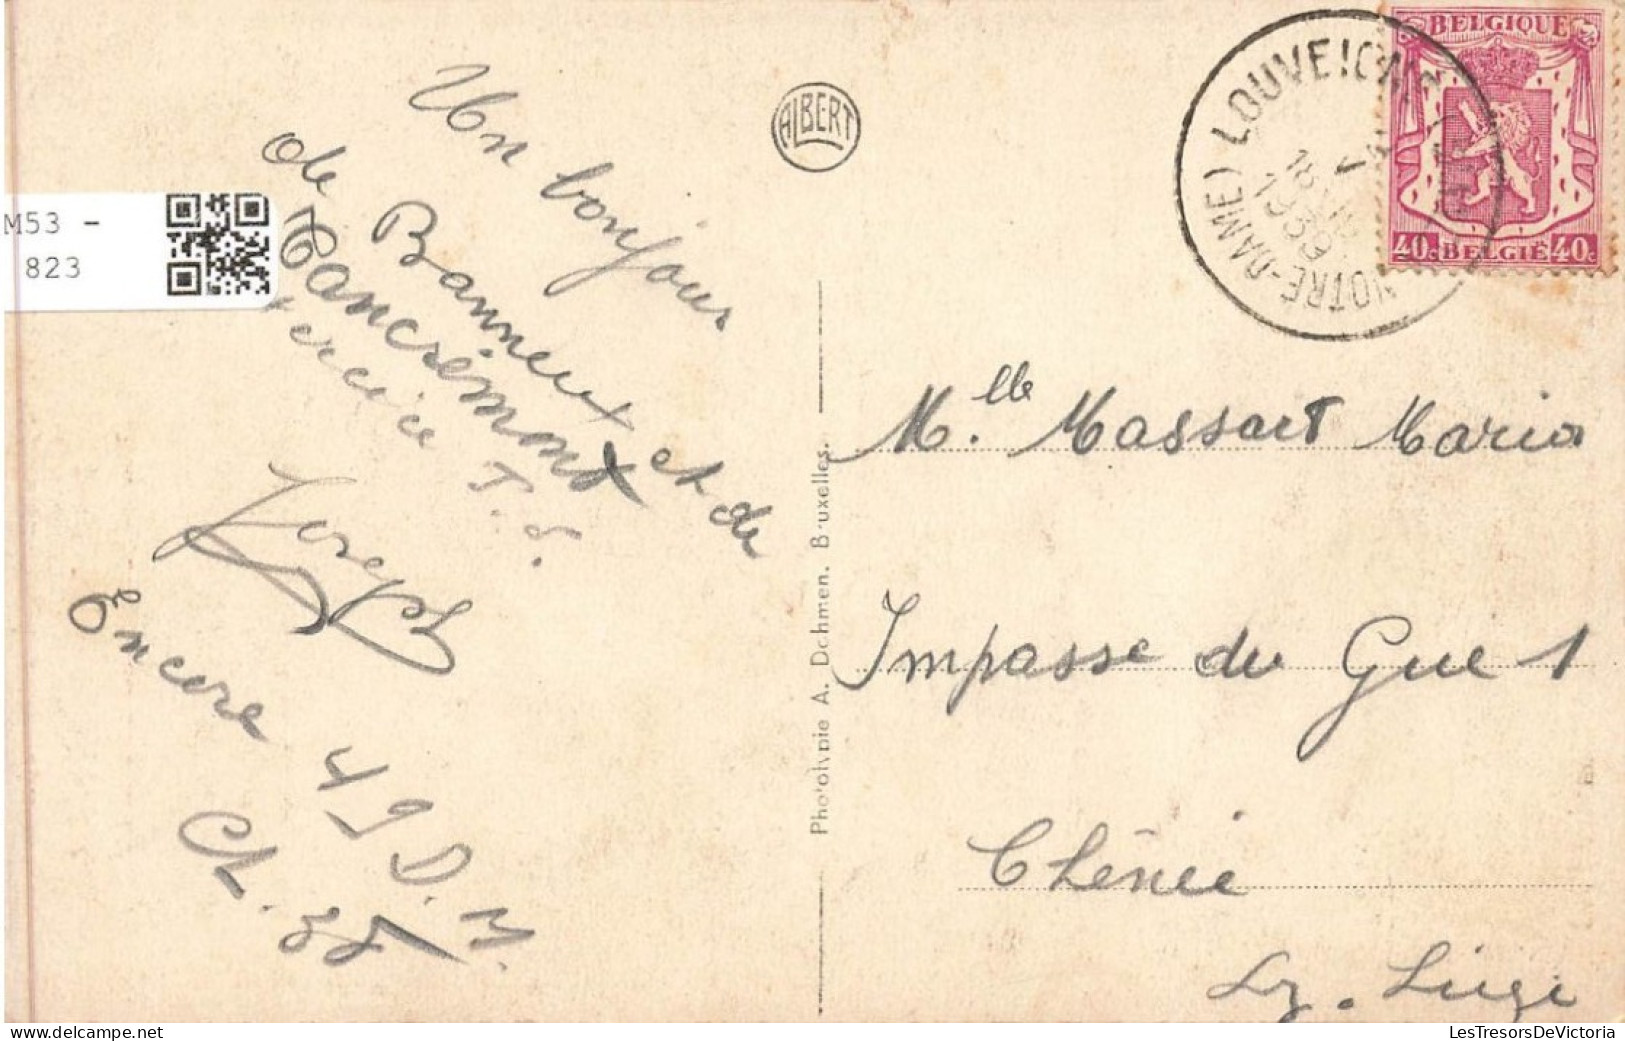 Un bonjour
de Banneux et de
Tancrémont
Joseph
Encore 49 D. M.
Ch. 35
ALBERT
Phototypie A. Dohmen. Bruxelles.
LOUVEIGNÉ
NOTRE-DAME)
1939
BELGIQUE
40c BELGIË 40c
Mlle. Massart Maria
Impasse du Gue 1
Chênée
Lz. Liége
M53 -
823
LesTresorsDeVictoria
www.delcampe.net